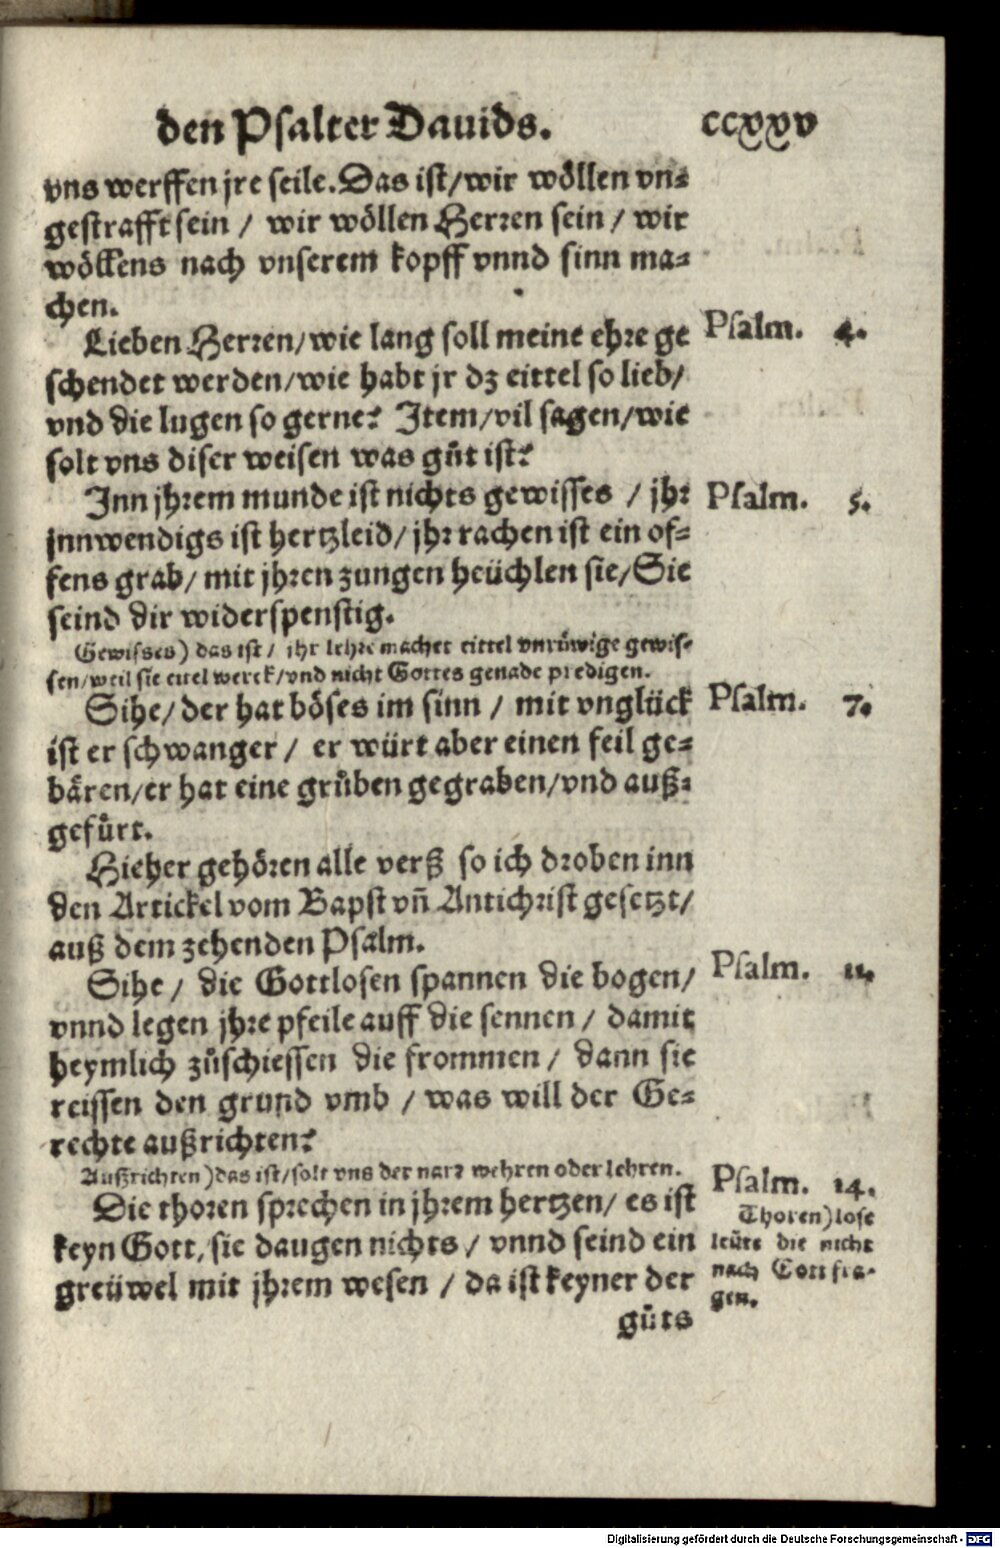 den Psalter Dauids.
ccxxv
vns werffen jre seile. Das ist/wir wöllen vn⸗
gestrafft sein / wir wöllen Herren sein / wir
wöllens nach vnserem kopff vnnd sinn ma⸗
chen.
Lieben Herren/wie lang soll meine ehre ge
schendet werden/wie habt jr dz eittel so lieb/
vnd die lugen so gerne? Item/vil sagen/wie
solt vns diser weisen was gůt ist?
Psalm. 4.
Inn jhrem munde ist nichts gewisses / jhr
jnnwendigs ist hertzleid/ jhr rachen ist ein of⸗
fens grab/ mit jhren zungen heüchlen sie/Sie
seind dir widerspenstig.
Psalm. 5.
Gewisses) das ist / ihr lehre machet eittel vnrüwige gewis⸗
sen/weil sie eitel werck/vnd nicht Gottes genade predigen.
Sihe/ der hat böses im sinn / mit vnglück
ist er schwanger / er würt aber einen feil ge⸗
bären/er hat eine grůben gegraben/vnd auß⸗
gefürt.
Psalm. 7.
Hieher gehören alle verß so ich droben inn
den Artickel vom Bapst vñ Antichrist gesetzt/
auß dem zehenden Psalm.
Sihe / die Gottlosen spannen die bogen/
vnnd legen jhre pfeile auff die sennen / damit
heymlich zůschiessen die frommen / dann sie
reissen den grund vmb / was will der Ge⸗
rechte außrichten?
Psalm. 11.
Außrichten) das ist/solt vns der narr wehren oder lehren.
Die thoren sprechen in jhrem hertzen/ es ist
keyn Gott, sie daugen nichts / vnnd seind ein
greüwel mit jhrem wesen / da ist keyner der
gůts
Psalm. 14.
Thoren) lose
leüte die nicht
nach Gott fra⸗
gen.
Digitalisierung gefördert durch die Deutsche Forschungsgemeinschaft - DFG